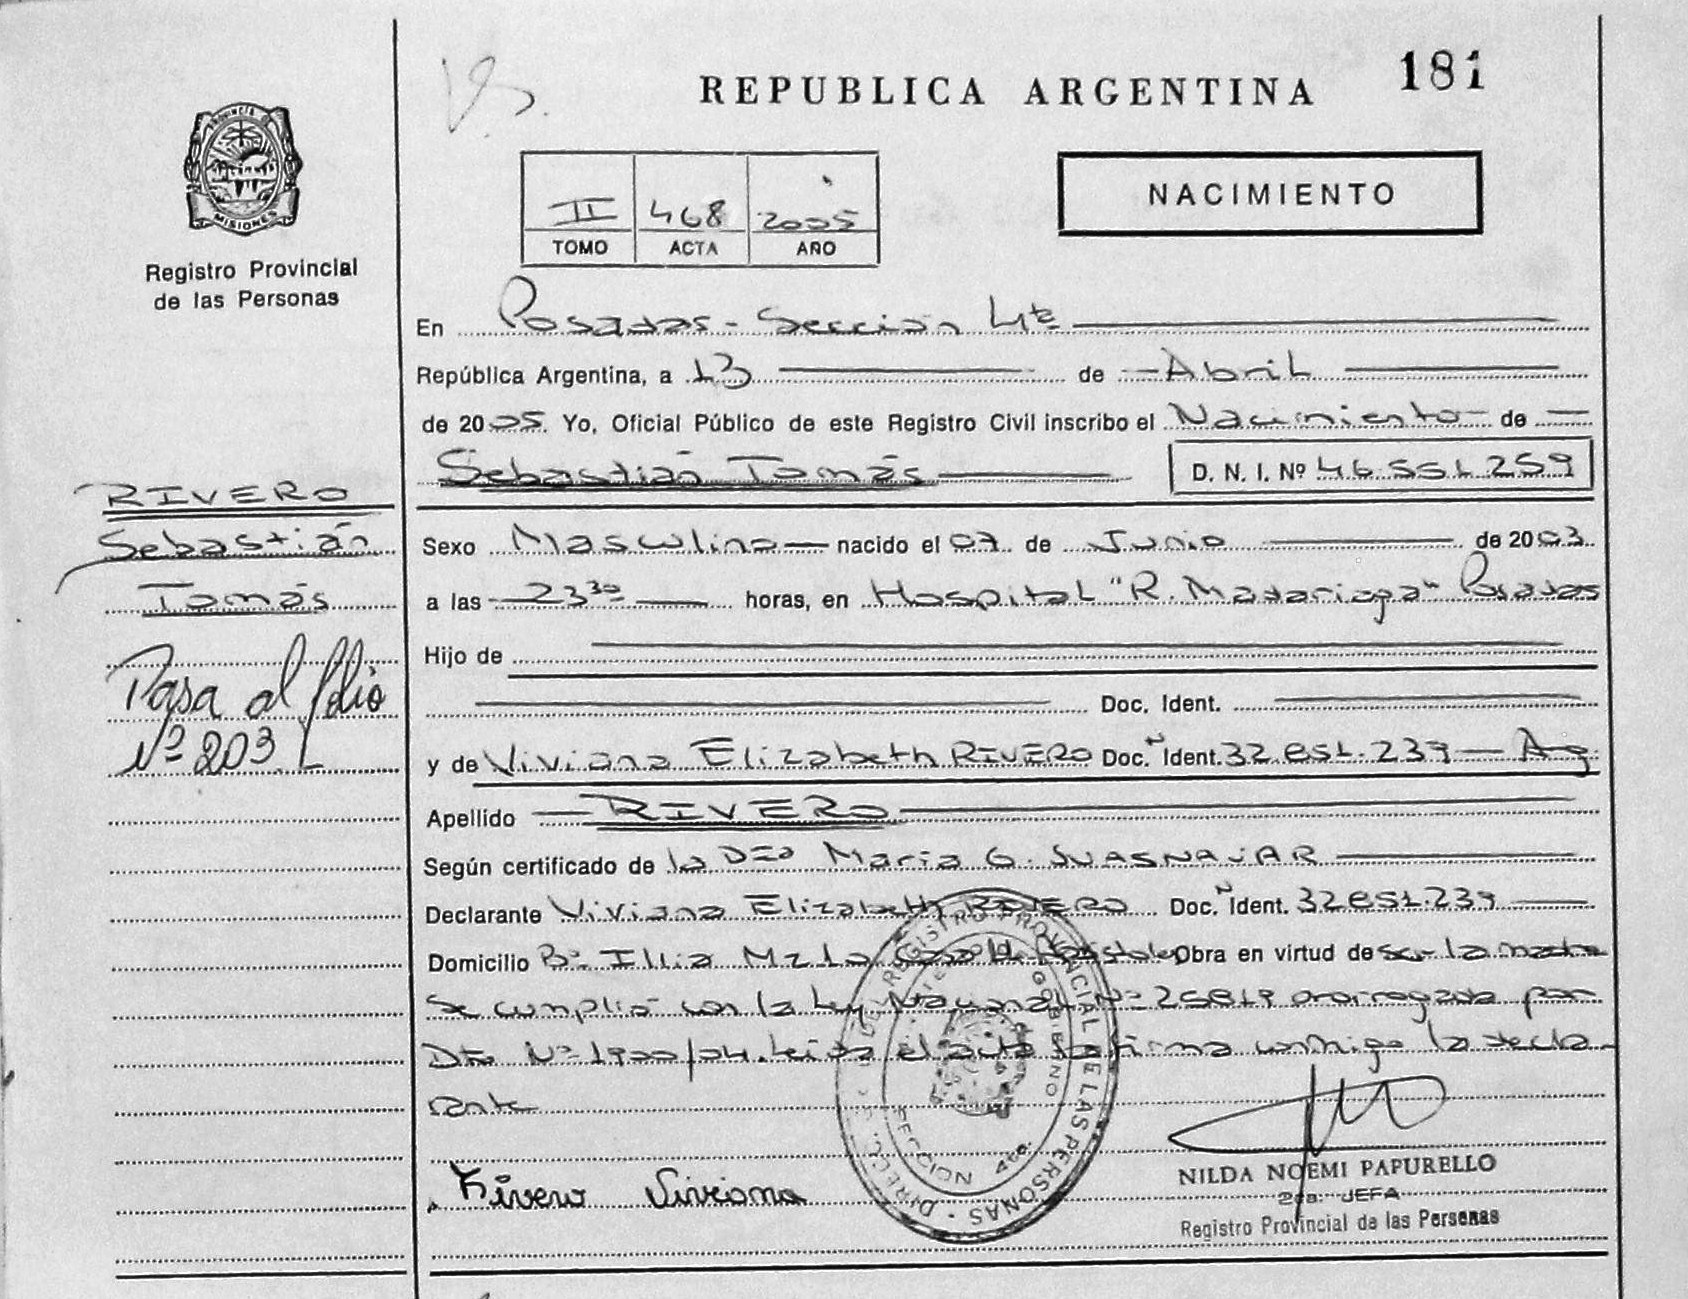 181
REPUBLICA ARGENTINA
PROVINCIA DE
MISIONES
Registro Provincial
de las Personas
II 468 2005
TOMO ACTA AÑO
NACIMIENTO
En Posadas - Sección 4ta
República Argentina, a 13 de Abril
de 2005. Yo, Oficial Público de este Registro Civil inscribo el Nacimiento de
Sebastián Tomás D. N. I. Nº 46.551.259
RIVERO
Sebastián
Tomás
Pasa al folio
Nº 203
Sexo Masculino nacido el 07 de Junio de 2003
a las 23 30 horas, en Hospital "R. Madariaga" Posadas
Hijo de
Doc. Ident.
y de Viviana Elizabeth RIVERO Doc. Ident. 32.851.239 Ag
Apellido RIVERO
Según certificado de la Dra Maria G. SUASNAJAR
Declarante Viviana Elizabeth RIVERO Doc. Ident. 32851.239
Domicilio Bº Illia Mz Obra en virtud de ser la madre
Se cumplió con la Ley Nacional Nº 25819 prorrogada por
Dto Nº 1900/04. Leída el acta la firma conmigo la decla-
rante
Rivero Viviana
DIRECCION DEL REGISTRO PROVINCIAL DE LAS PERSONAS
GOBIERNO
SECCION 4ta.
NILDA NOEMI PAPURELLO
2da. JEFA
Registro Provincial de las Personas